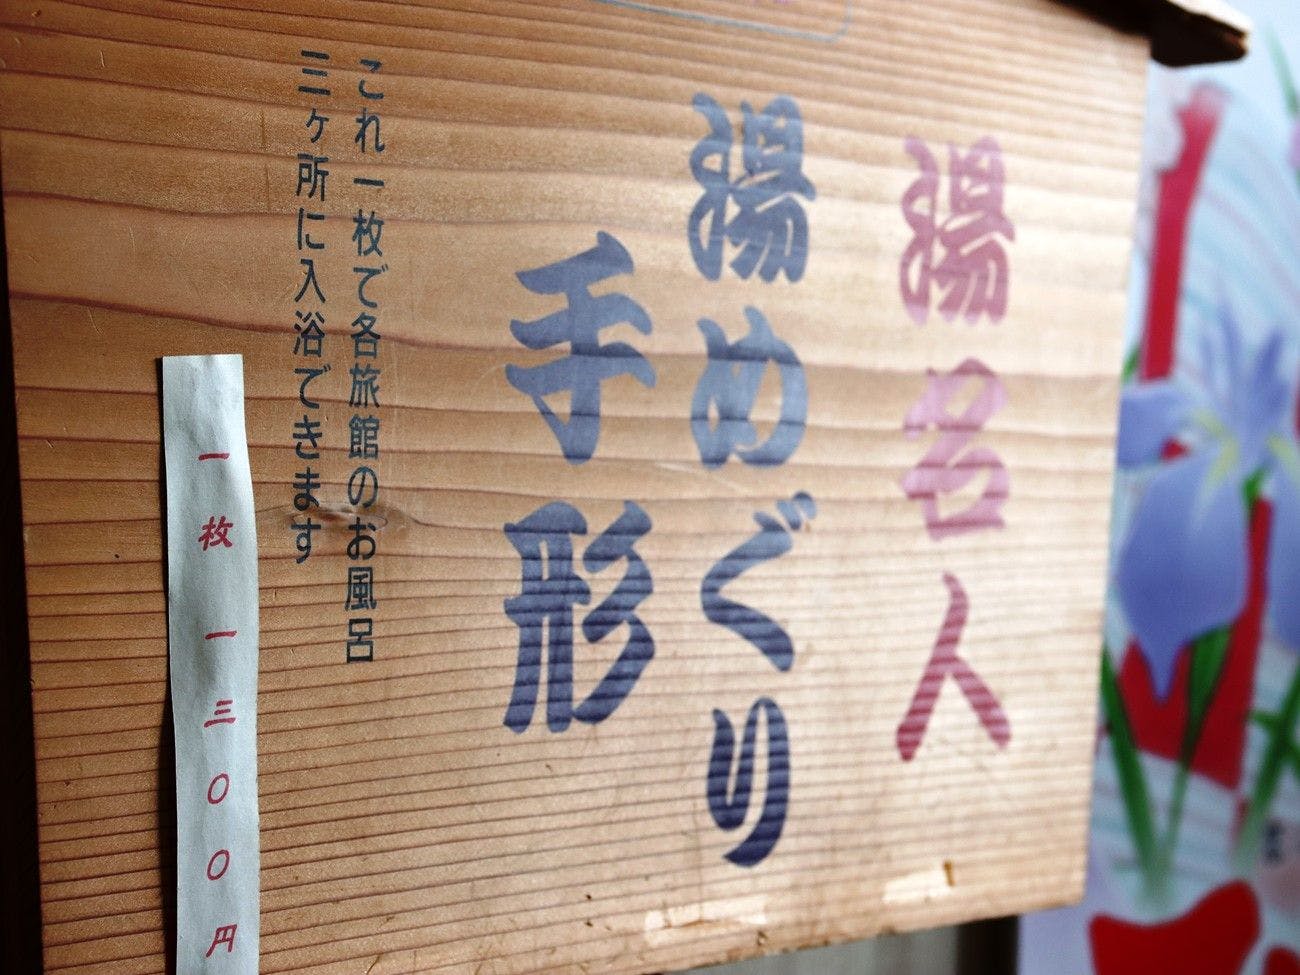 湯名人
湯めぐり
手形
これ一枚で各旅館のお風呂
三ヶ所に入浴できます
一枚 一三〇〇円